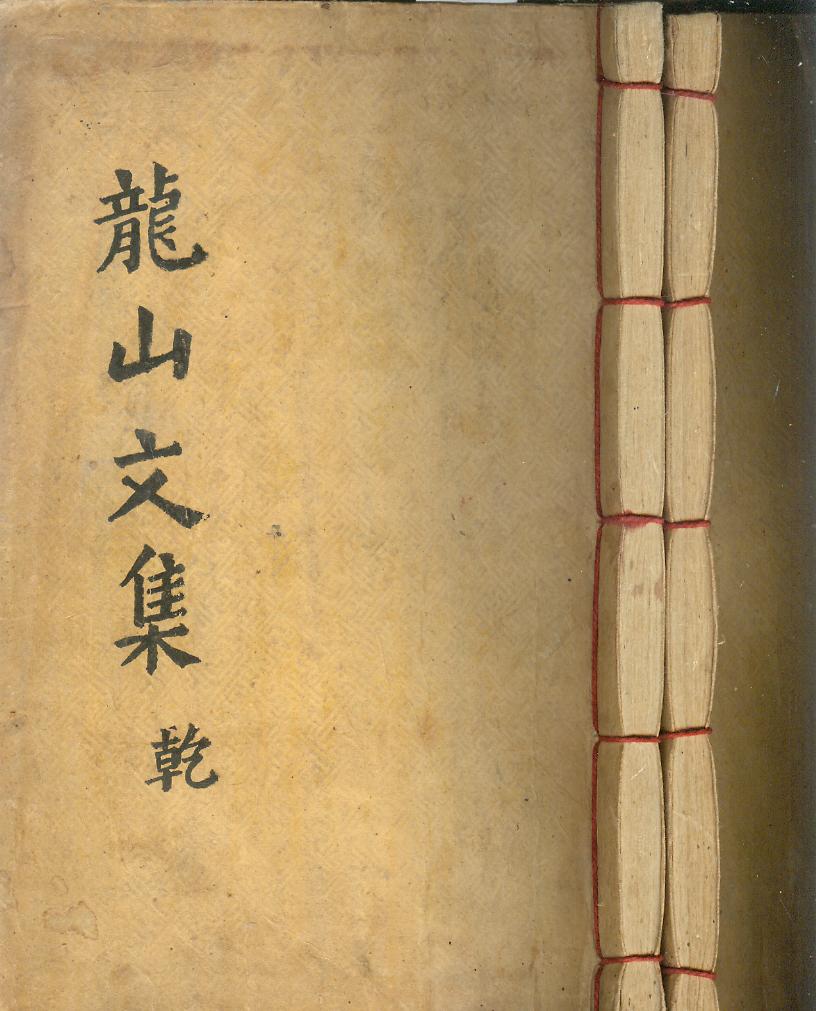 龍山文集 乾